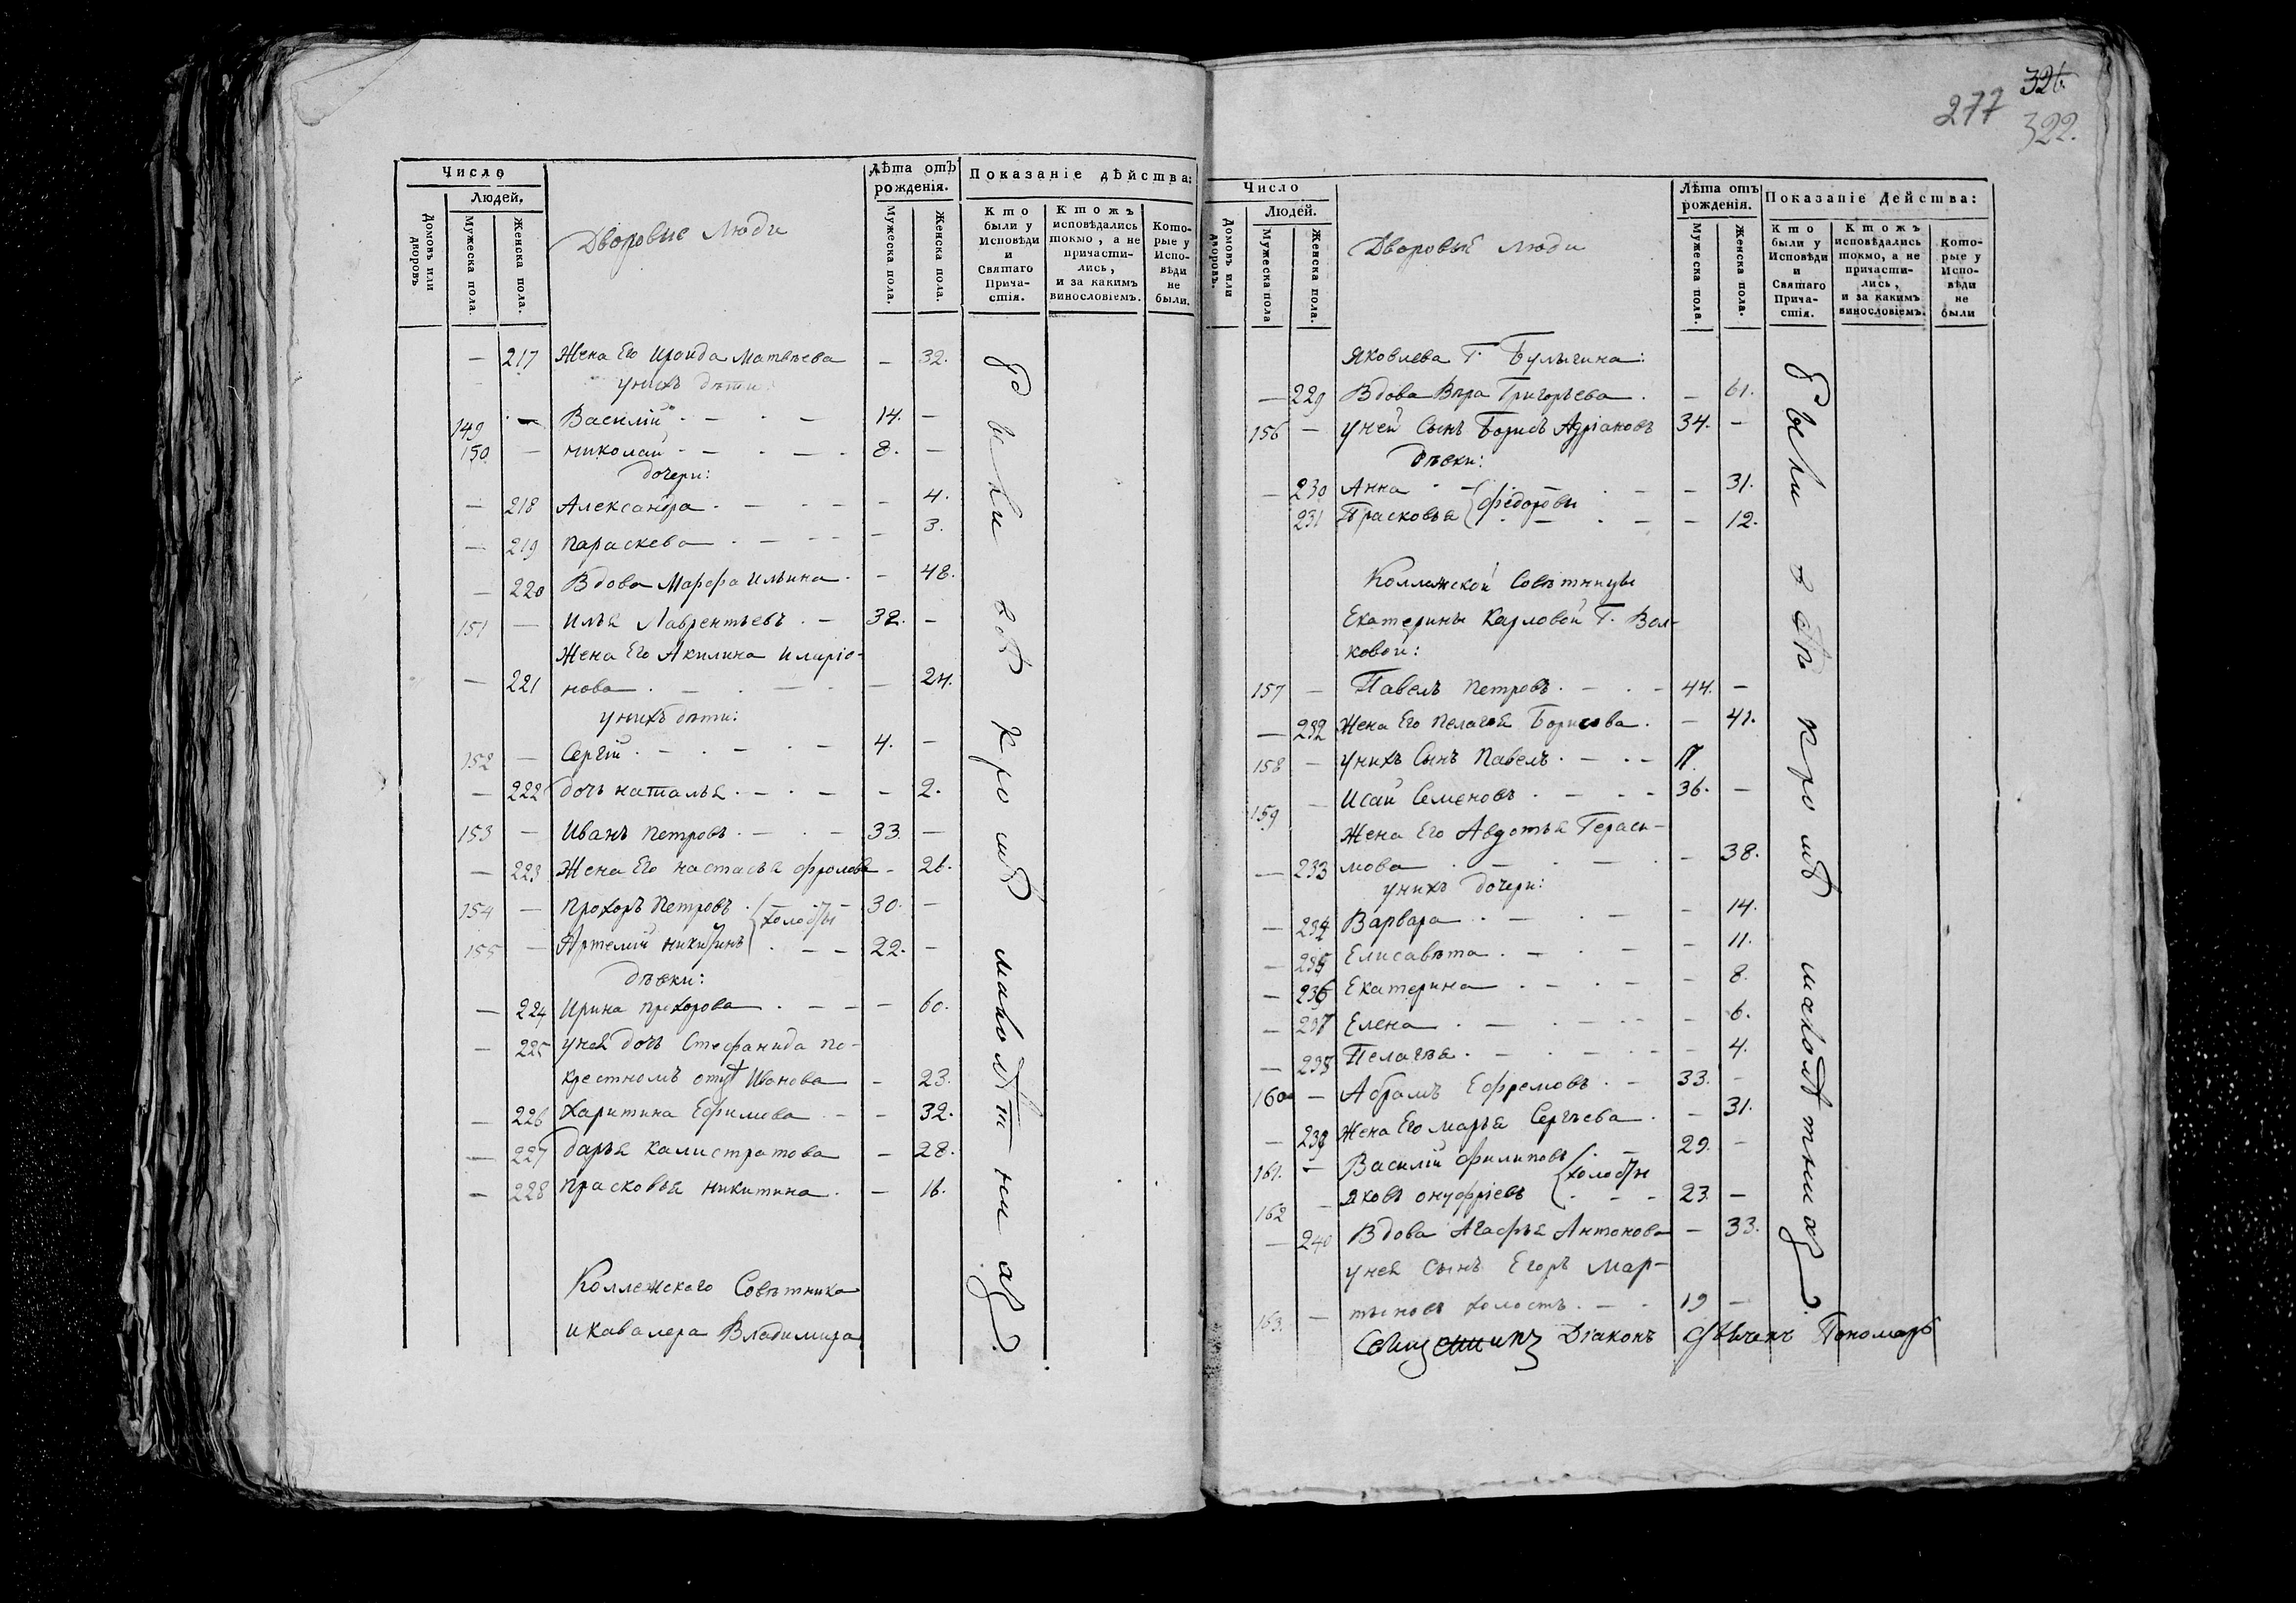 Число
Людей.
Домовъ или дворовъ.
Мужеска пола.
Женска пола.
Дворовые Люди
Лѣта отъ рожденія.
Мужеска пола.
Женска пола.
Показаніе дѣйства:
Кто были у Исповѣди и Святаго Причастія.
Ктожъ исповѣдались токмо, а не причастились, и за какимъ винословіемъ.
Которые у Исповѣди не были.
— 217 Жена Его Ираида Матвѣева — 32.
у нихъ дѣти
149 — Василій 14. —
150 — Николай 8. —
дочери:
— 218 Александра — 4.
— 219 Параскева — 3.
— 220 Вдова Марфа Ильина — 48.
151 — Илья Лаврентьевъ 32. —
Жена Его Акилина Иларіо-
— 221 нова — 24.
у нихъ дѣти:
152 — Сергій 4. —
— 222 дочь Наталья — 2.
153 — Иванъ Петровъ 33 —
— 223 Жена Его Настасья Фролова — 26.
154 — Прохоръ Петровъ 30. —
холосты
155 — Артемій Никитинъ 22. —
дѣвки:
— 224 Ирина Прохорова — 60.
— 225 у ней дочь Стефанида по-
крестномъ отцѣ Иванова — 23.
— 226 Харитина Ефимова — 32.
— 227 Дарья Калистратова — 28.
— 228 Прасковья Никитина — 16.
Коллежскаго Совѣтника
и Кавалера Владимира
Были всѣ кромѣ малолѣтнихъ.
277
326.
322.
Число
Людей.
Домовъ или дворовъ.
Мужеска пола
Женска пола.
Дворовыѣ люди
Лѣта отъ рожденія.
Мужеска пола.
Женска пола.
Показаніе Действа:
Кто были у Исповѣди и Святаго Причастія.
Ктожъ исповѣдались токмо, а не причастились, и за какимъ винословіемъ.
Которые у Исповѣди не были
Яковлева Г. Булыгина:
— 229 Вдова Вѣра Григорьева — 61.
156 — у ней Сынъ Борисъ Адріановъ 34. —
дѣвки:
— 230 Анна — 31.
Федоровы
231 Прасковья — 12.
Коллежской Совѣтницы
Екатерины Карловой Г. Вол-
ковой:
157 — Павелъ Петровъ 44. —
— 232 Жена Его Пелагея Борисова — 41.
158 — у нихъ Сынъ Павелъ 17.
159 — Исай Семеновъ 36. —
Жена Его Авдотья Гераси-
— 233 мова — 38.
у нихъ дочери:
— 234 Варвара — 14.
— 235 Елисавѣта — 11.
— 236 Екатерина — 8.
— 237 Елена — 6.
— 238 Пелагѣя — 4.
160 — Абрамъ Ефремовъ 33. —
— 239 Жена Его Марья Сергѣева — 31.
161. — Василій Филиповъ 29. —
холосты
162 — Яковъ Онуфріевъ 23. —
— 240 Вдова Агафья Антонова — 33.
у нея Сынъ Егоръ Мар-
163. — тыновъ холостъ 19 —
Были всѣ кромѣ малолѣтнихъ.
Священникъ Діаконъ Дьячекъ Пономарь